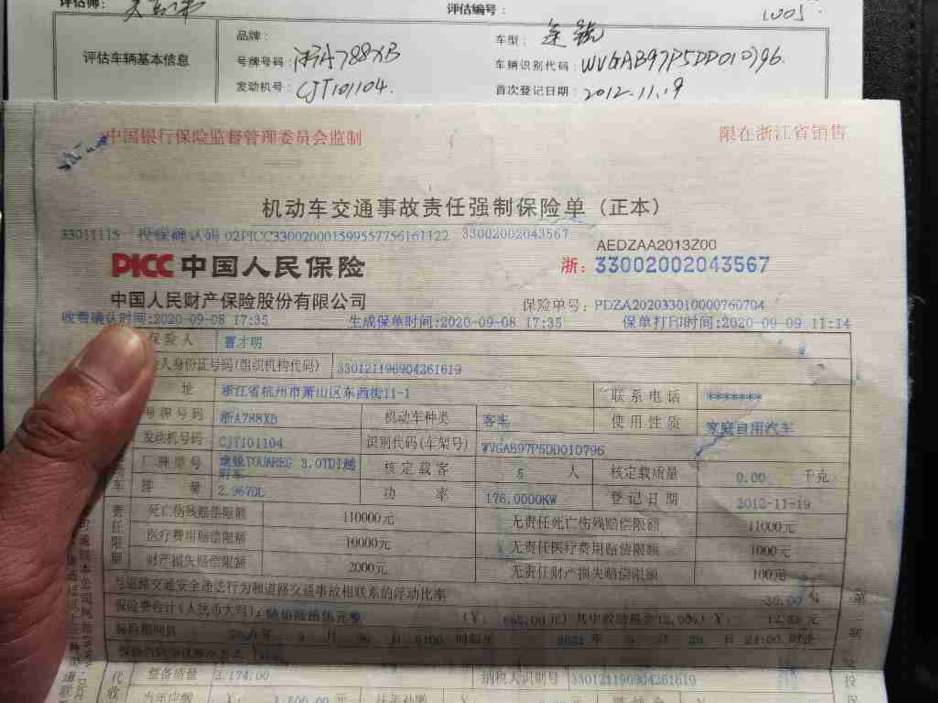 评估师:
评估编号:
评估车辆基本信息
品牌:
车型: 途锐
号牌号码: 浙A788XB
车辆识别代码: WVGAB97P5DD010796
发动机号: CJT101104
首次登记日期: 2012.11.19
中国银行保险监督管理委员会监制
限在浙江省销售
机动车交通事故责任强制保险单 (正本)
33011115 投保确认码 02PICC330020001599557756161122 33002002043567
AEDZAA2013Z00
PICC 中国人民保险
浙: 33002002043567
中国人民财产保险股份有限公司
保险单号: PDZA202033010000760704
收费确认时间:2020-09-08 17:35 生成保单时间:2020-09-08 17:35 保单打印时间:2020-09-09 11:14
保险人
人身份证号码(组织机构代码) 330121196904261619
址 浙江省杭州市萧山区东西街11-1 联系电话 *******
号牌号码 浙A788XB 机动车种类 客车 使用性质 家庭自用汽车
发动机号码 CJT101104 识别代码(车架号) WVGAB97P5DD010796
厂牌型号 途锐TOUAREG 3.0TDI越野车 核定载客 5 人 核定载质量 0.00 千克
排量 2.9670L 功率 176.0000KW 登记日期 2012-11-19
责任限额
死亡伤残赔偿限额 110000元 无责任死亡伤残赔偿限额 11000元
医疗费用赔偿限额 10000元 无责任医疗费用赔偿限额 1000元
财产损失赔偿限额 2000元 无责任财产损失赔偿限额 100元
与道路交通安全违法行为和道路交通事故相联系的浮动比率 -30.00 %
保险费合计(人民币大写): (¥: 665.00元) 其中救助基金
保险期间自
整备质量 2,174.00 纳税人识别号 330121196904261619